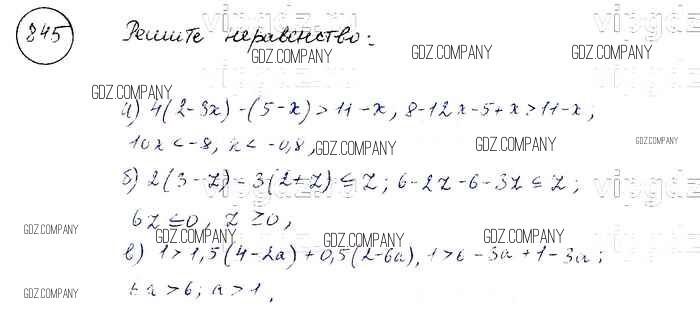 845 Решите неравенство:
а) 4(2-3x) -(5-x) > 11-x, 8-12x-5+x > 11-x;
10x < -8, x < -0,8,
б) 2(3-z) - 3(2+z) ≤ z; 6-2z-6-3z ≤ z;
6z ≤ 0, z ≥ 0,
в) 1 > 1,5(4-2a) + 0,5(2-6a), 1 > 6-3a+1-3a;
6a > 6; a > 1.
GDZ.COMPANY
GDZ.COMPANY
GDZ.COMPANY
GDZ.COMPANY
GDZ.COMPANY
GDZ.COMPANY
GDZ.COMPANY
GDZ.COMPANY
GDZ.COMPANY
GDZ.COMPANY
GDZ.COMPANY